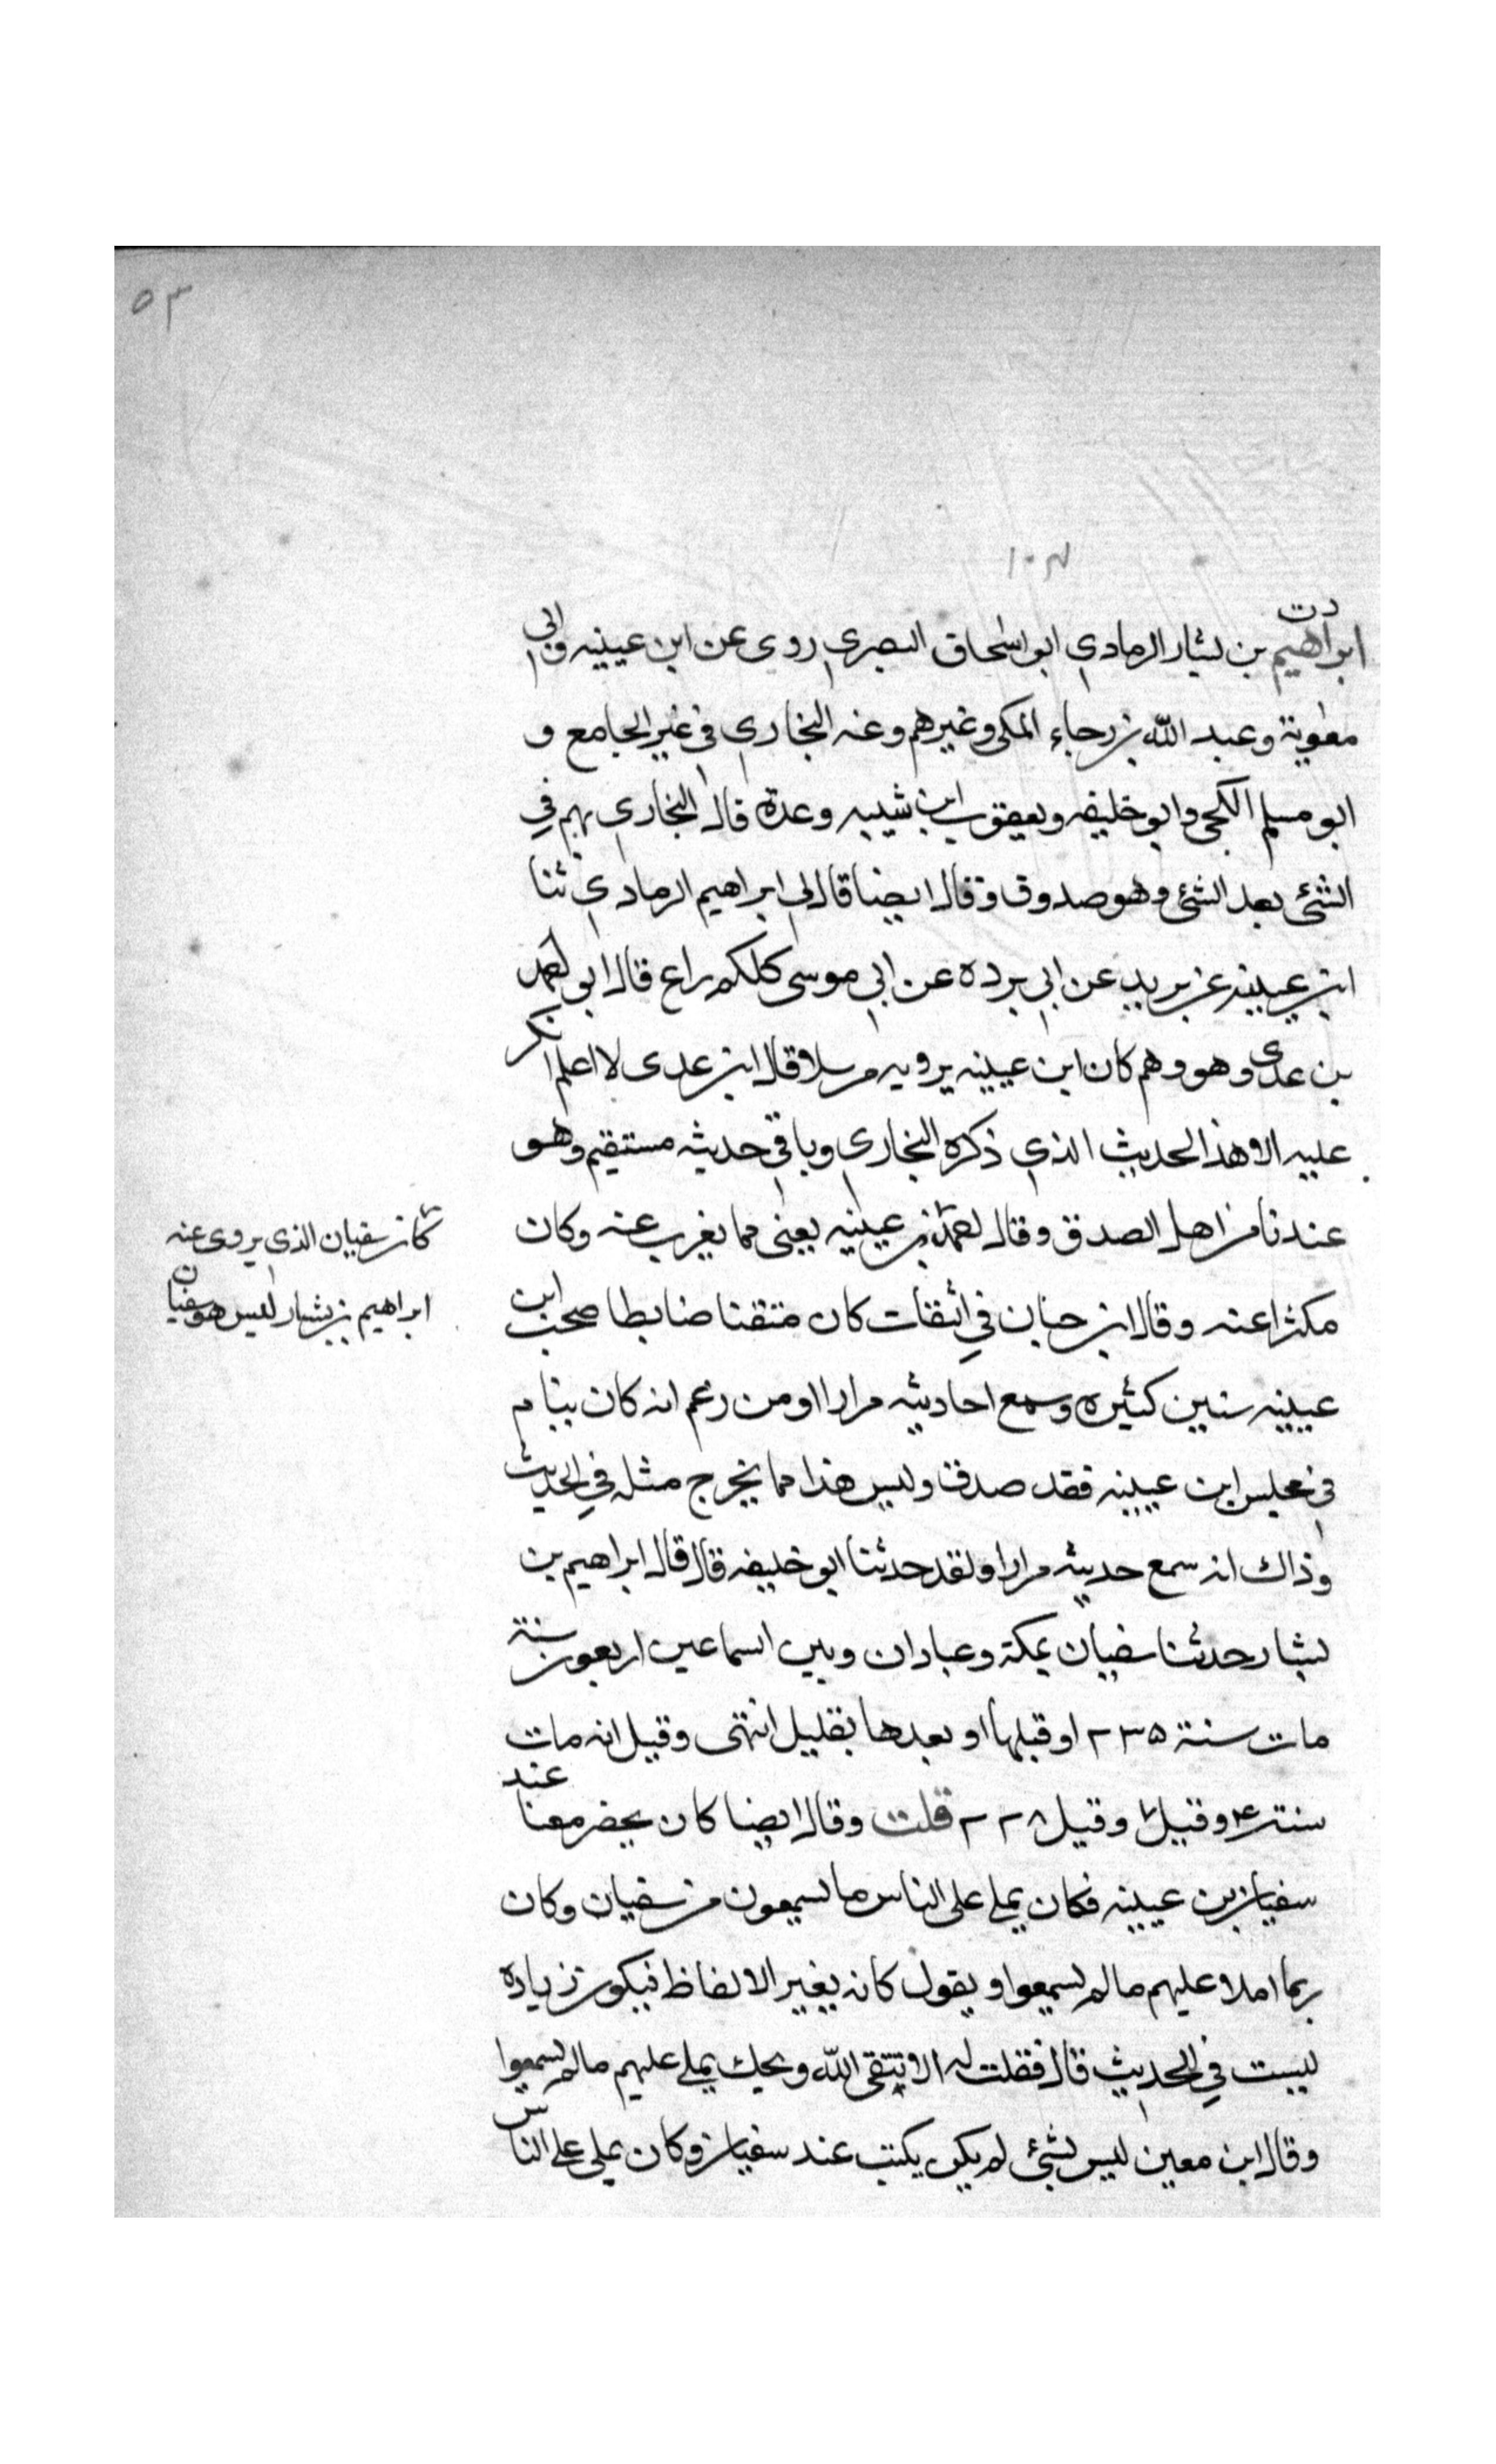 ٥٣
١٠٣
دت
ابراهيم بن بشار الرمادي ابو اسحاق البصري روى عن ابن عيينه وابي
معوية وعبد الله بن رجاء المكي وغيرهم وعنه البخاري في غير الجامع و
ابو مسلم الكجي وابو خليفه ويعقوب ابن شيبه وعدة قال البخاري يهم في
الشئ بعد الشئ وهو صدوق وقال ايضا قال لي ابراهيم الرمادي ثنا
ابن عيينه عن بريد عن ابي برده عن ابي موسى كلكم راع قال ابو احمد
بن عدي وهو وهم كان ابن عيينه يرويه مرسلا قال ابن عدى لا اعلم انكر
عليه الا هذا الحديث الذي ذكره البخاري وباقي حديثه مستقيم وهو
عندنا من اهل الصدق وقال احمد بن عيينه يعنى مما يغرب عنه وكان
مكثرا عنه وقال ابن حبان في الثقات كان متقنا ضابطا صحب ابن
عيينه سنين كثيره وسمع احاديثه مرارا ومن زعم انه كان ينام
في مجلس ابن عيينه فقد صدق وليس هذا مما يخرج مثله في الحديث
وذاك انه سمع حديثه مرارا ولقد حدثنا ابو خليفه قال قال ابراهيم بن
بشار حدثنا سفيان بمكة وعبادان وبين السماعين اربعون سنة
مات سنة ٢٣٥ او قبلها او بعدها بقليل انتهى وقيل انه مات
سنة ٢٤ وقيل ٧ وقيل ٢٢٨ قلت وقال ايضا كان يحضر معنا عند
سفيان بن عيينه فكان يملي على الناس ما يسمعون من سفيان وكان
ربما املا عليهم ما لم يسمعوا و يقول كانه يغير الالفاظ فيكون زياده
ليست في الحديث قال فقلت له الا تتقى الله ويحك يملي عليهم ما لم يسمعوا
وقال ابن معين ليس بشئ لم يكن يكتب عند سفيان وكان يملي على الناس
كان سفيان الذي يروى عنه
ابراهيم بن بشار ليس هو سفيان